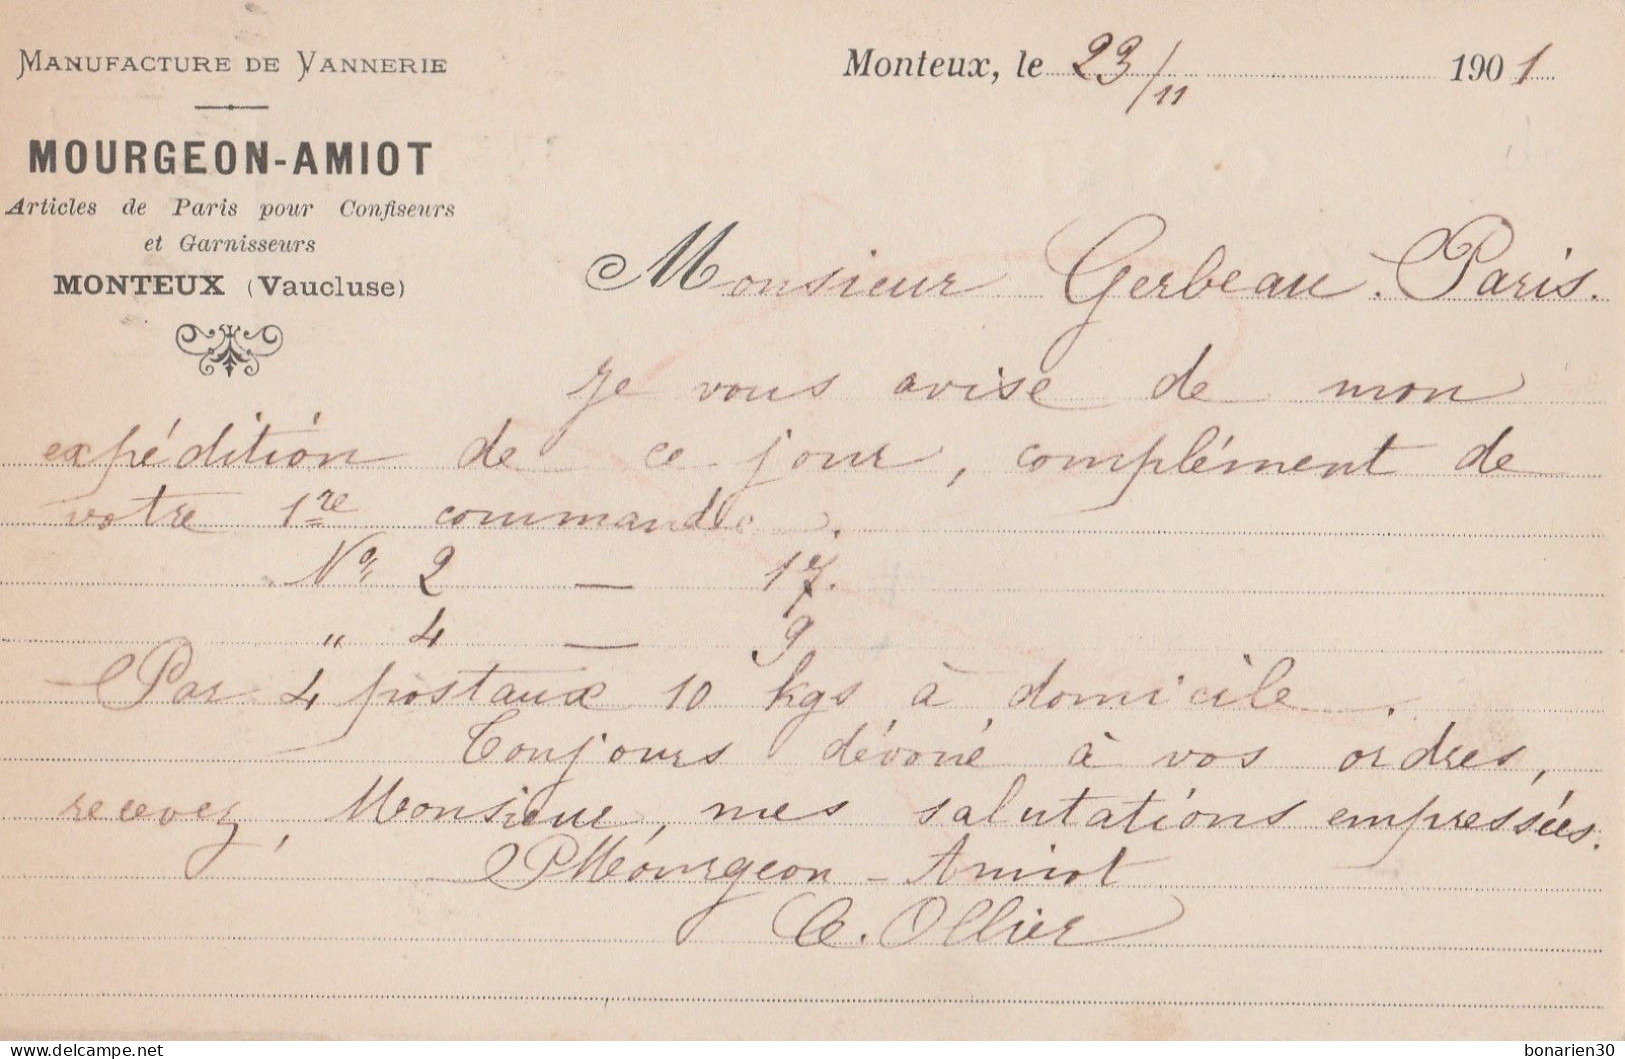 MANUFACTURE DE VANNERIE
MOURGEON-AMIOT
Articles de Paris pour Confiseurs
et Garnisseurs
MONTEUX (Vaucluse)
Monteux, le 23/11 1901
Monsieur Gerbeau. Paris.
Je vous avise de mon
expédition de ce jour, complément de
votre 1re commande.
No 2 — 17.
" 4 — 9
Par 4 postaux 10 kgs à domicile.
Toujours dévoué à vos ordres,
recevez, Monsieur, mes salutations empressées.
P Mourgeon - Amiot
C. Ollier
delcampe.net
bonarien30